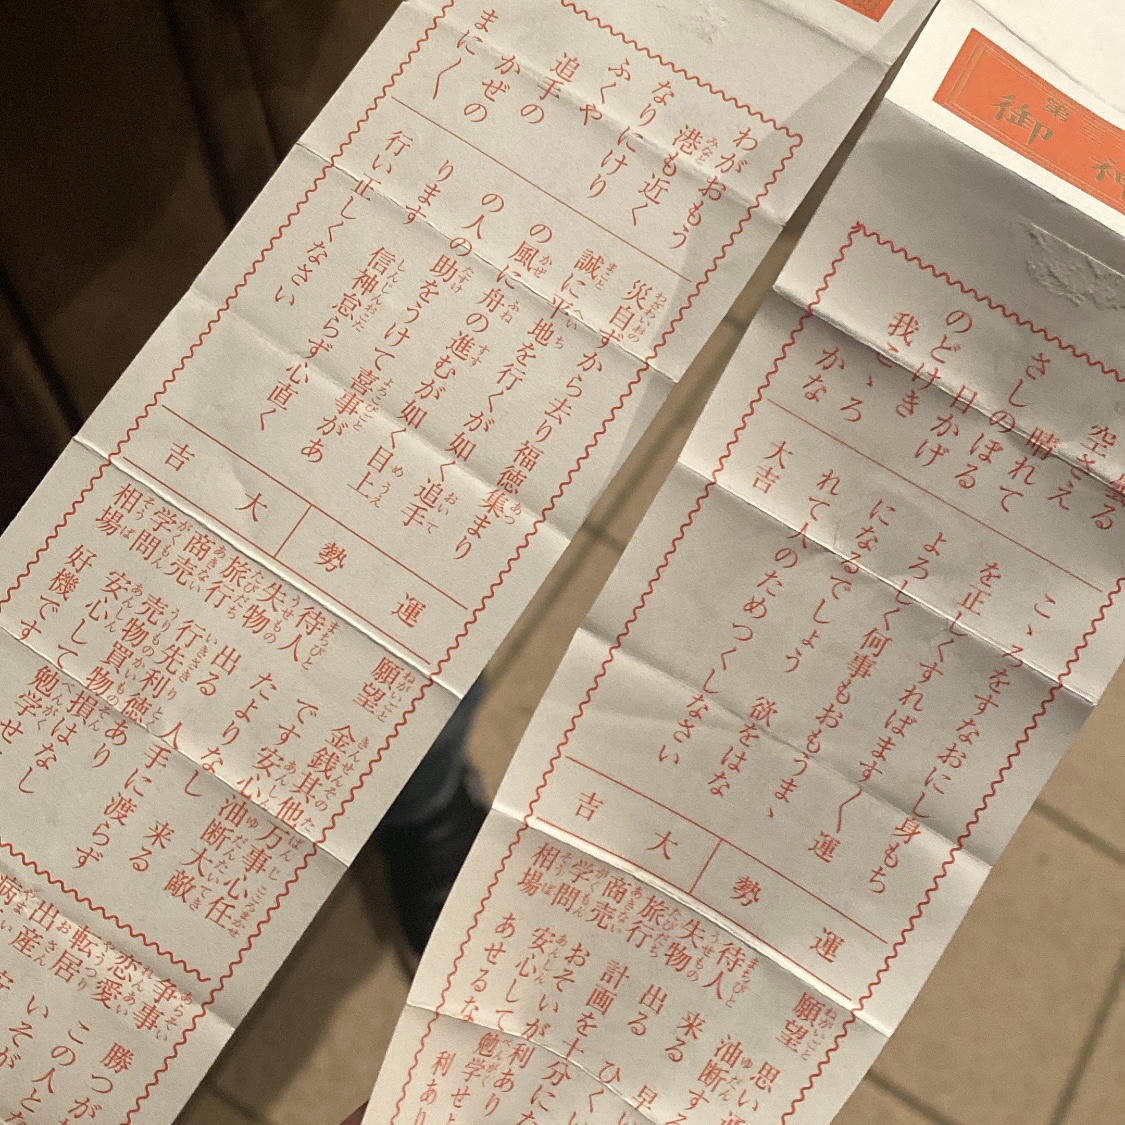 御神
わがおもう
港も近く
なりにけり
ふくや
追手の
かぜの
まに〱
災自ずから去り福徳集まり
誠に平地を行くが如く追手
の風に舟の進むが如く目上
の人の助をうけて喜事があ
ります 信神怠らず心直く
行い正しくなさい
運勢 大吉
願望 金銭其他万事心任
です安心油断大敵
待人 たよりなし 来る
失物 出る 人手に渡らず
旅行 行先利徳あり
商売 売物買物損はなし
学問 安心して勉学せ
相場 好機です
争事 勝つが
恋愛 この人と
転居 いそが
出産
病
空さえ
晴れて
さしのぼる
日かげ
のどけき
我こゝろ
かな
こゝろをすなおにし身もち
を正しくすればます〱運
よろしく何事もおもうまゝ
になるでしょう 欲をはな
れて人のためつくしなさい
大吉
運勢 大吉
願望 思い
油断する
待人 来る
失物 出る
旅行 計画を十分に
商売 おそいが利あり
学問 安心して勉学せよ
相場 あせるな 利あり